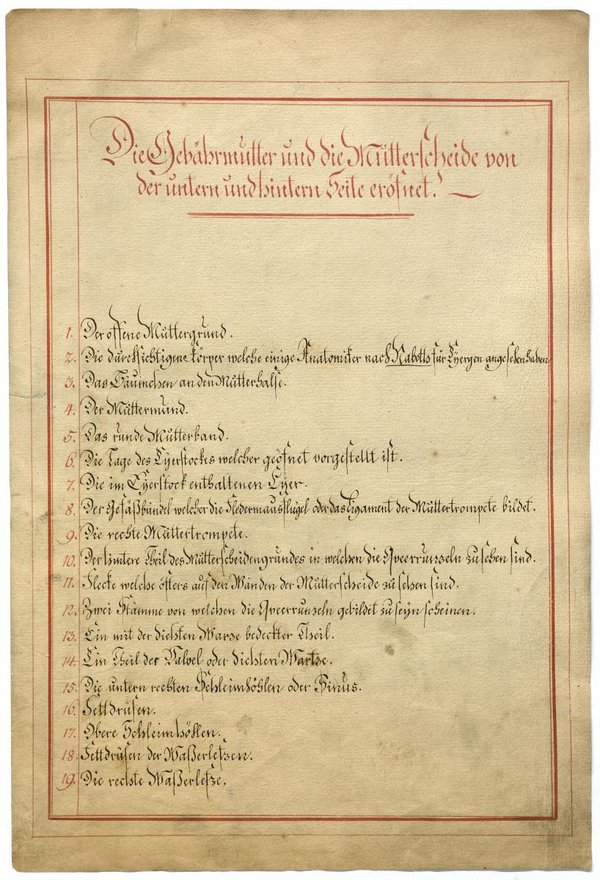 Die Gebährmutter und die Mutterscheide von
der untern und hintern Seite eröfnet.
1. Der offene Muttergrund.
2. Die durchsichtigen Körper welche einige Anatomiker nach Nabotts für Eyergen angesehen haben
3. Das Bäumchen an den Mutterhalse.
4. Der Muttermund.
5. Das runde Mutterband.
6. Die Lage des Eyerstockes welcher geöfnet vorgestellt ist.
7. Die im Eyerstock enthaltenen Eyer.
8. Der Gefäßbündel welcher die Fledermausflügel oder das Ligament der Muttertrompete bildet.
9. Die rechte Muttertrompete.
10. Der hintere Theil des Mutterscheidengrundes in welchen die Qveerrunzeln zu sehen sind.
11. Flecke welche öfters auf den Wänden der Mutterscheide zu sehen sind.
12. Zwei Stämme von welchen die Qveerrunzeln gebildet zu seyn scheinen.
13. Ein mit der dichten Warze bedeckter Theil.
14. Ein Theil der oder dichten Wartze.
15. Die untern rechten Schleimhöhlen oder Sinus.
16. Fettdrüsen.
17. Obere Schleimhöhlen.
18. Fettdrüsen der Waßerlefzen.
19. Die rechte Waßerlefze.